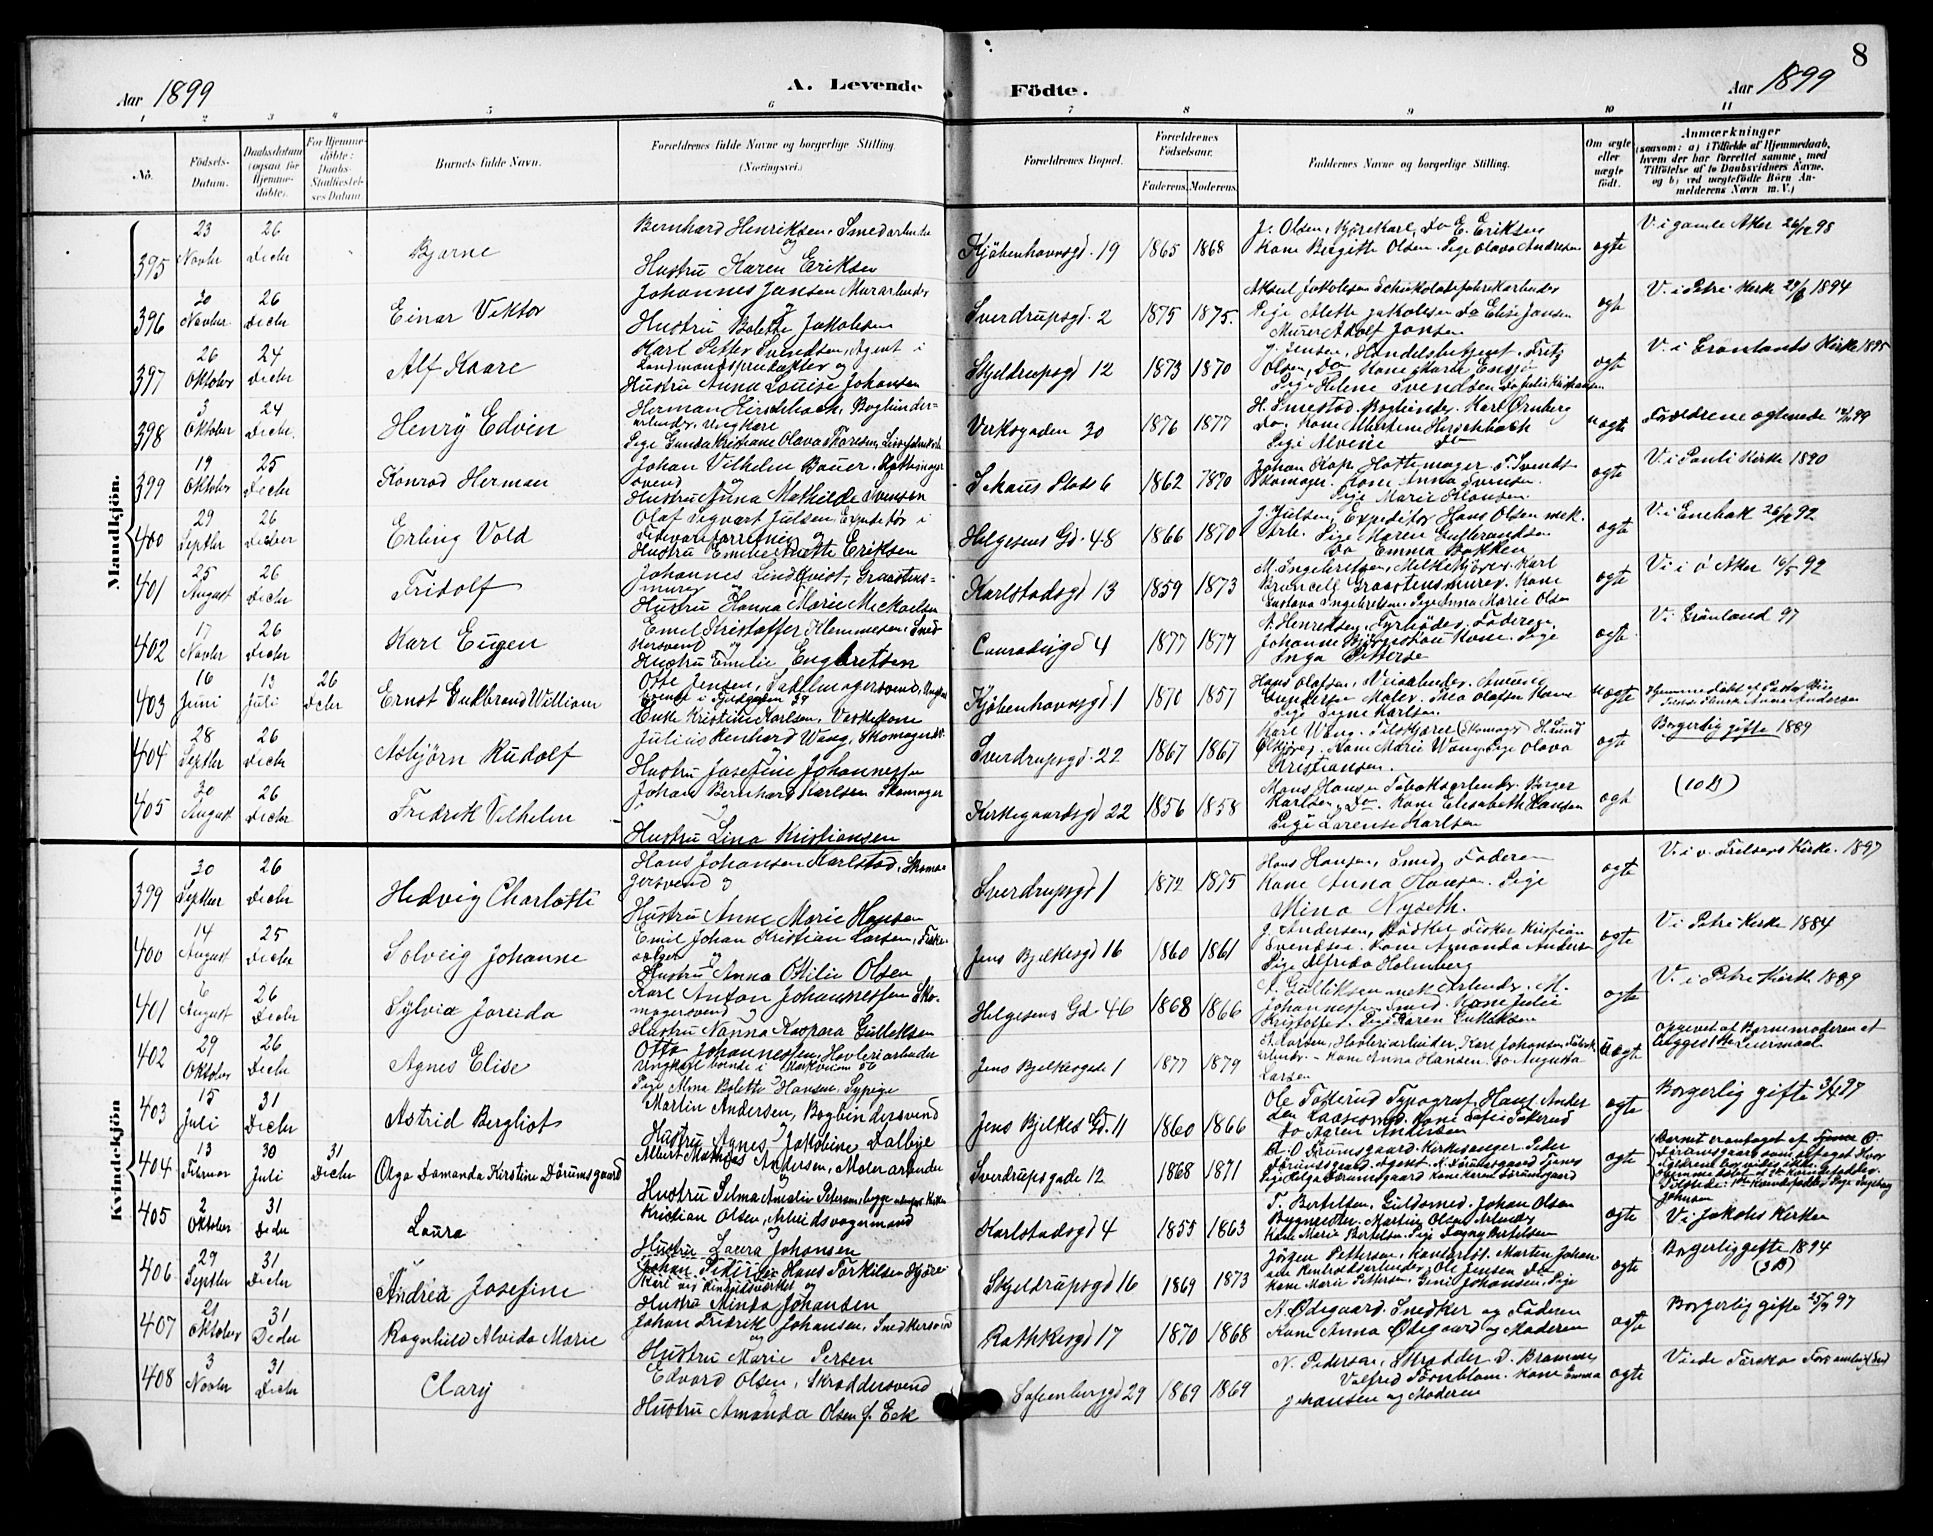 8
Aar 1899
A. Levende
Födte.
Aar 1899
1 2 3 4 5 6 7 8 9 10 11
No.
Födsels-Datum.
Daabsdatum (ogsaa for Hjemme-döbte).
For Hjemme-döbte: Daabs-Stadfæstel-ses Datum.
Barnets fulde Navn.
Forældrenes fulde Navne og borgerlige Stilling (Næringsvei.)
Forældrenes Bopæl.
Forældrenes Födselsaar.
Faderens. Moderens.
Faddernes Navne og borgerlige Stilling.
Om ægte eller uægte födt.
Anmærkninger
(saasom: a) i Tilfælde af Hjemmedaab, hvem der har forrettet samme, med Tilföielse af to Daabsvidners Navne, og b) ved uægtefödte Börn An-melderens Navn m. V.)
Mandkjön.
395 23 Novbr 26 Decbr Bjarne
Bernhard Henriksen, Smedarbeider og
Hustru Karen Eriksen
Kjöbenhavnsgd. 19 1865 1868
J. Olsen, Kjörekarl, Do E. Eriksen
Kone Birgitte Olsen. Pige Olava Andresen
ægte
V. i gamle Aker 26/12 98
396 30 Novbr 26 Decbr Einar Viktor
Johannes Jensen Murarbeider
Hustru Bolette Jakobsen
Sverdrupsgd. 2 1875 1875.
Pige Mette Jakobsen Do Elise Jansen
Murer Adolf Jansen
ægt
V. i Petri Kirke 1894
397 26 Oktober 24 Decbr Alf Kaare
Karl Petter Svendsen, Agent i
Landmandsprodukter og
Hustru Anna Louise Johansen
Skjeldrupsgd 12 1873 1870
J. Jensen, Handelsbetjent, Fritz
Olsen, Do
ægt
V. i Grönlands Kirke 1895
398 3 Oktober 24 Decbr. Henry Edvin
Herman Hirschbach, Bogbinder-
arbeider, Ungkarl
Verksgaden 30 1876 1877
H. Smestad. Bogbinder. Karl Ørnberg
Do. Kone Martine Hirschbach
Pige Alvine Do
uægte
Forældrene ægteviede 99
399 19 Oktober 25 Decbr Konrad Herman
Johan Vilhelm Bauer, Hattemager
svend og
Hustru Anna Mathilde Svensen
Schous Plads 6 1862 1870
Skomager. Kone Anna Svensen.
Pige Marie Klausen.
ægte
V. i Pauli Kirke 1890
400 29 Septbr 26 Decber Erling Vold
Olaf Sigvart Julsen, Expeditör i
Hustru Emilie Anette Eriksen
Helgesens Gd. 48 1866 1870
J. Julsen, Expeditör Hans Olsen mek.
Arb. Pige Maren Gulbrandsen
Do Emma Bakken
ægte
V. i Enebak 26/12 92
401 25 August 26 Decbr Fridolf
Johannes Lindqvist, Graastens-
murer og
Hustru Hanna Marie Mikaelsen
Karlstadsgd 13 1859 1873
M. Ingebritsen, Melkekjörer. Karl
Gustava Ingebretsen, Pige Anna Marie Olsen
ægte
V. i Ö Aker 92
402 17 Novbr 26 Decbr Karl Eugen
Emil Kristoffer Klemmesen, Sned-
kersvend og
Hustru Emilie Engbretsen
Conradisgd 4 1877 1877
N. Henriksen, Fyrböder, Faderen,
Johanne Björgestrøm Kone. Pige
Inga Pettersen
ægte
V. i Grönland 97
403 16 Juni 13 Juli 26 Decbr Ernst Gulbrand William
Otto Jensen, Sadelmagersvend, Ungkar
Enke Kristine Karlsen, Vaskekone
Kjöbenhavnsgd. 1 1870 1857
Hans Olafsen, Veiarbeider, Amund
Gundersen Maler. Thea Olafsen Kone
Pige Signe Karlsen
uægte
404 28 Septbr 26 Decbr Asbjörn Rudolf
Julius Renhard Wang, Skomager
Hustru Josefine Johannessen
Sverdrupsgd. 22 1867 1867
Kone Marie Wang, Pige Olava
Kristiansen.
ægte
Borgerlig gifte 1889
405 30 August 26 Decbr Fredrik Vilhelm
Johan Bernhard Karlsen Skomager
Hustru Lina Kristiansen
Kirkegaardsgd 22 1856 1858
Hans Hansen Tobaksarbeider. Birger
Karlsen, Do Kone Elisabeth Hansen
Pige Laranse Karlsen
ægt
(10 B)
Kvindekjön
399 30 Septber 26 Decbr Hedvig Charlotte
Hans Johansen Karlstad, Skoma-
gersvend og
Hustru Anne Marie Hansen
Sverdrupsgd 1 1872 1875
Hans Hansen, Smed, Faderen
Kone Anna Hansen. Pige
Mina Nyseth.
ægte
V. i v. Frelsers Kirke. 1897
400 14 August 25 Decbr Solveig Johanne
Emil Johan Kristian Larsen, Fiske-
sælger og
Hustru Anna Otilie Olsen
Jens Bjelkesgd 16 1860 1861
J. Andersen, Bödker Fisker Kristian
Svendsen. Kone Amanda Anders
Pige Alfrida Holmberg
ægte
V i Petri Kirke 1884
401 6 August 26 Decbr Sylvia Joreida
Karl Anton Johannessen Sko-
magersvend og
Hustru Nanna Kaspara Gulleksen
Helgesens Gd. 46 1868 1866
A. Gulliksen mek Arbeider, M.
Johannessen Smed. Kone Julie
Kristoffes. Pige Karen Gulleksen
ægte
V. i Petri Kirke 1889
402 29 Oktober 26 Decbr Agnes Elise
Otto Johannessen, Hövleriarbeider
Ungkarl boende i Markveien 56
Pige Alma Bolette Hansen. Sypige
Jens Bjelkesgade 1 1877 1879
A. Larsen, Hövleriarbeider, Karl Johansen Fabrik
arbeider. Kone Anna Hansen. Do Augusta
Larsen
Uægte
Opgivet af Barnemoderen at
begges 1ste Leiermaal
403 15 Juli 31 Decbr Astrid Bergliot
Martin Andersen, Bogbindersvend
Hustru Agnes Jakobine Dalbye
Jens Bjelkes Gd. 11 1860 1866
Ole Fosterud Typograf, Hans Ander
Do Karen Andersen
ægte
Borgerlig gifte 3/4 97
404 13 Februar 30 Juli 31 Decbr Olga Damanda Kirstine Dörumsgaard
Albert Mathias Andersen, Malerarbeider
Hustru Selma Amalie Petersen
Sverdrupsgade 12 1868 1871
O. O. Frumsgaard. Kirkesanger Peder
Dörumsgaard, Agent. N. Dörumsgaard
Pige Helga Dörumsgaard Kone Karen Dörumsgaard
ægte
405 2 Oktober 31 Decbr Laura
Kristian Olsen, Arbeidsvogermand
Hustru Laura Johansen
Karlstadsgd 4 1855 1863
T. Bertelsen, Guldsmed. Johan Olsen
Bygmester. Martin Olsen Arbeider
Kone Marie Bertelsen. Pige Dagny Bertelsen
ægte
V. i Jakobs Kirken
406 29 Septbr 31 Decbr Andrea Josefine
Hans Torkilsen Kjöre
Hustru Minda Johansen
Skjeldrupsgd 16 1869 1873
Jörgen Pettersen, Martin Johan
sen Renholdsarbeider, Ole Jensen Do
Kone Marie Pettersen, Gina Johansen, Pige
ægte
Borgerlig gifte 1894
(3 B)
407 21 Oktober 31 Decbr Ragnhild Alvida Marie
Johan Fredrik Johansen, Snedkersvend
og
Hustru Marie Persen
Rathkesgd 17 1870 1868
N. Ødegaard. Snedker og Faderen
Kone Anna Ødegaard og Moderen
ægte
Borgerlig gifte 25/9 97
408 3 Novbr 31 Decbr Clary
Edvard Olsen, Skræddersvend
Hustru Amanda Olsen f. Eek
Sofienberggd 29 1869 1869
N. Pedersen, Skrædder, D. Brommer
Valfrid Törnblom. Kone Emma
Johansen og Moderen
ægte